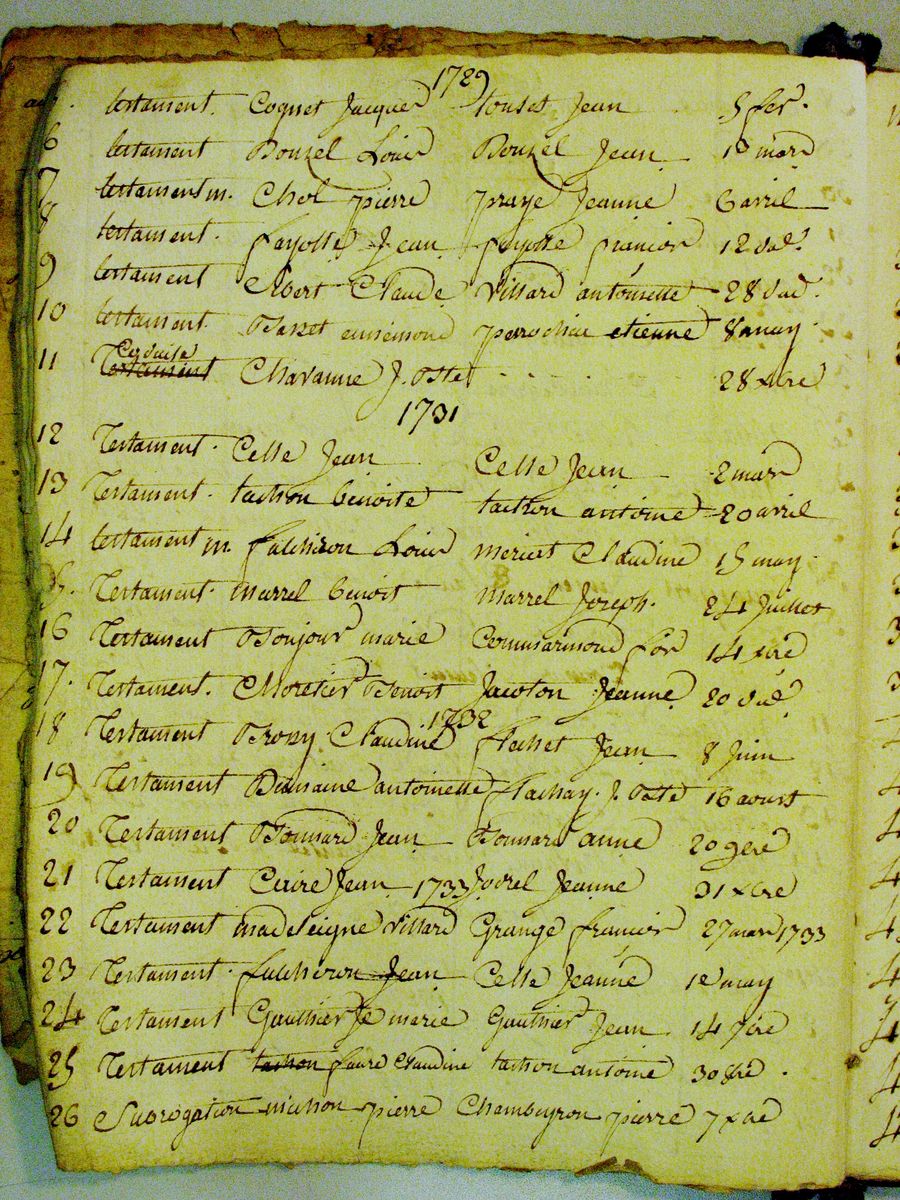 1729
testament. Cognet Jacques touset Jean 5 fer.
6 testament Bouzel Louis Bouzel Jean 10 mars
7 testament m. Chol pierre praye Jeanne 6 avril
8 testament. fayolle Jean fayolle francois 12 dud.
9 testament Claude Villard antoinette 28 dud.
10 testament. ennemond etienne 8 may.
11 Testament Chavanne J. Bte 28 xbre
1731
12 Testament. Celle Jean Celle Jean 2 mars
13 Testament. tachon benoite tachon antoine 20 avril
14 testament m. Louis Claudine 15 may.
15. Testament. marrel benoist marrel Joseph. 24 Juillet
16 Testament Bonjour marie 14 xbre
17. Testament. Benoist Jeanne 20 dud.
1732
18 Testament Brony Claudine flachet Jean 8 Juin
19 Testament antoinette flachay J. Bte 16 aoust
20 Testament Bonnard Jean Bonnard anne 20 9bre
21 Testament Claire Jean 1733 Jeanne 31 xbre
22 Testament madeleigne villard Grange francois 27 mars 1733
23 Testament. Jean Celle Jeanne 18 may
24 Testament Gauthier Je marie Gauthier Jean 14 7bre
25 Testament tachon faure Claudine tachon antoine 30 8bre.
26 Subrogation michon pierre Chambeyron pierre 7 xbre